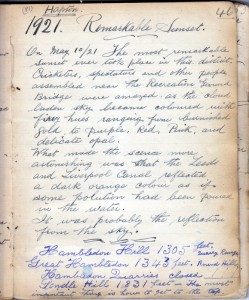 Hapton.
40
1921. Remarkable Sunset.
On May 10/21 The most remarkable
Sunset ever took place in this district.
Cricketers, spectators and other people
assembled near the Recreation Ground
Bridge were amazed as the ground
under sky became coloured with
fiery hues ranging from burnished
Gold to purple, Red, Pink, and
delicate opal.
What made the scene more
astonishing was that the Leeds
and Liverpool Canal reflected
a dark orange colour as if
some solution had been poured
in the water.
It was probably the reflection
from the sky.
Hambledon Hill 1305 feet.
Great Hambledon 1343 feet.
Hambledon Quarries closed
Pendle Hill 1831 feet. The most
important thing is how to get to the top